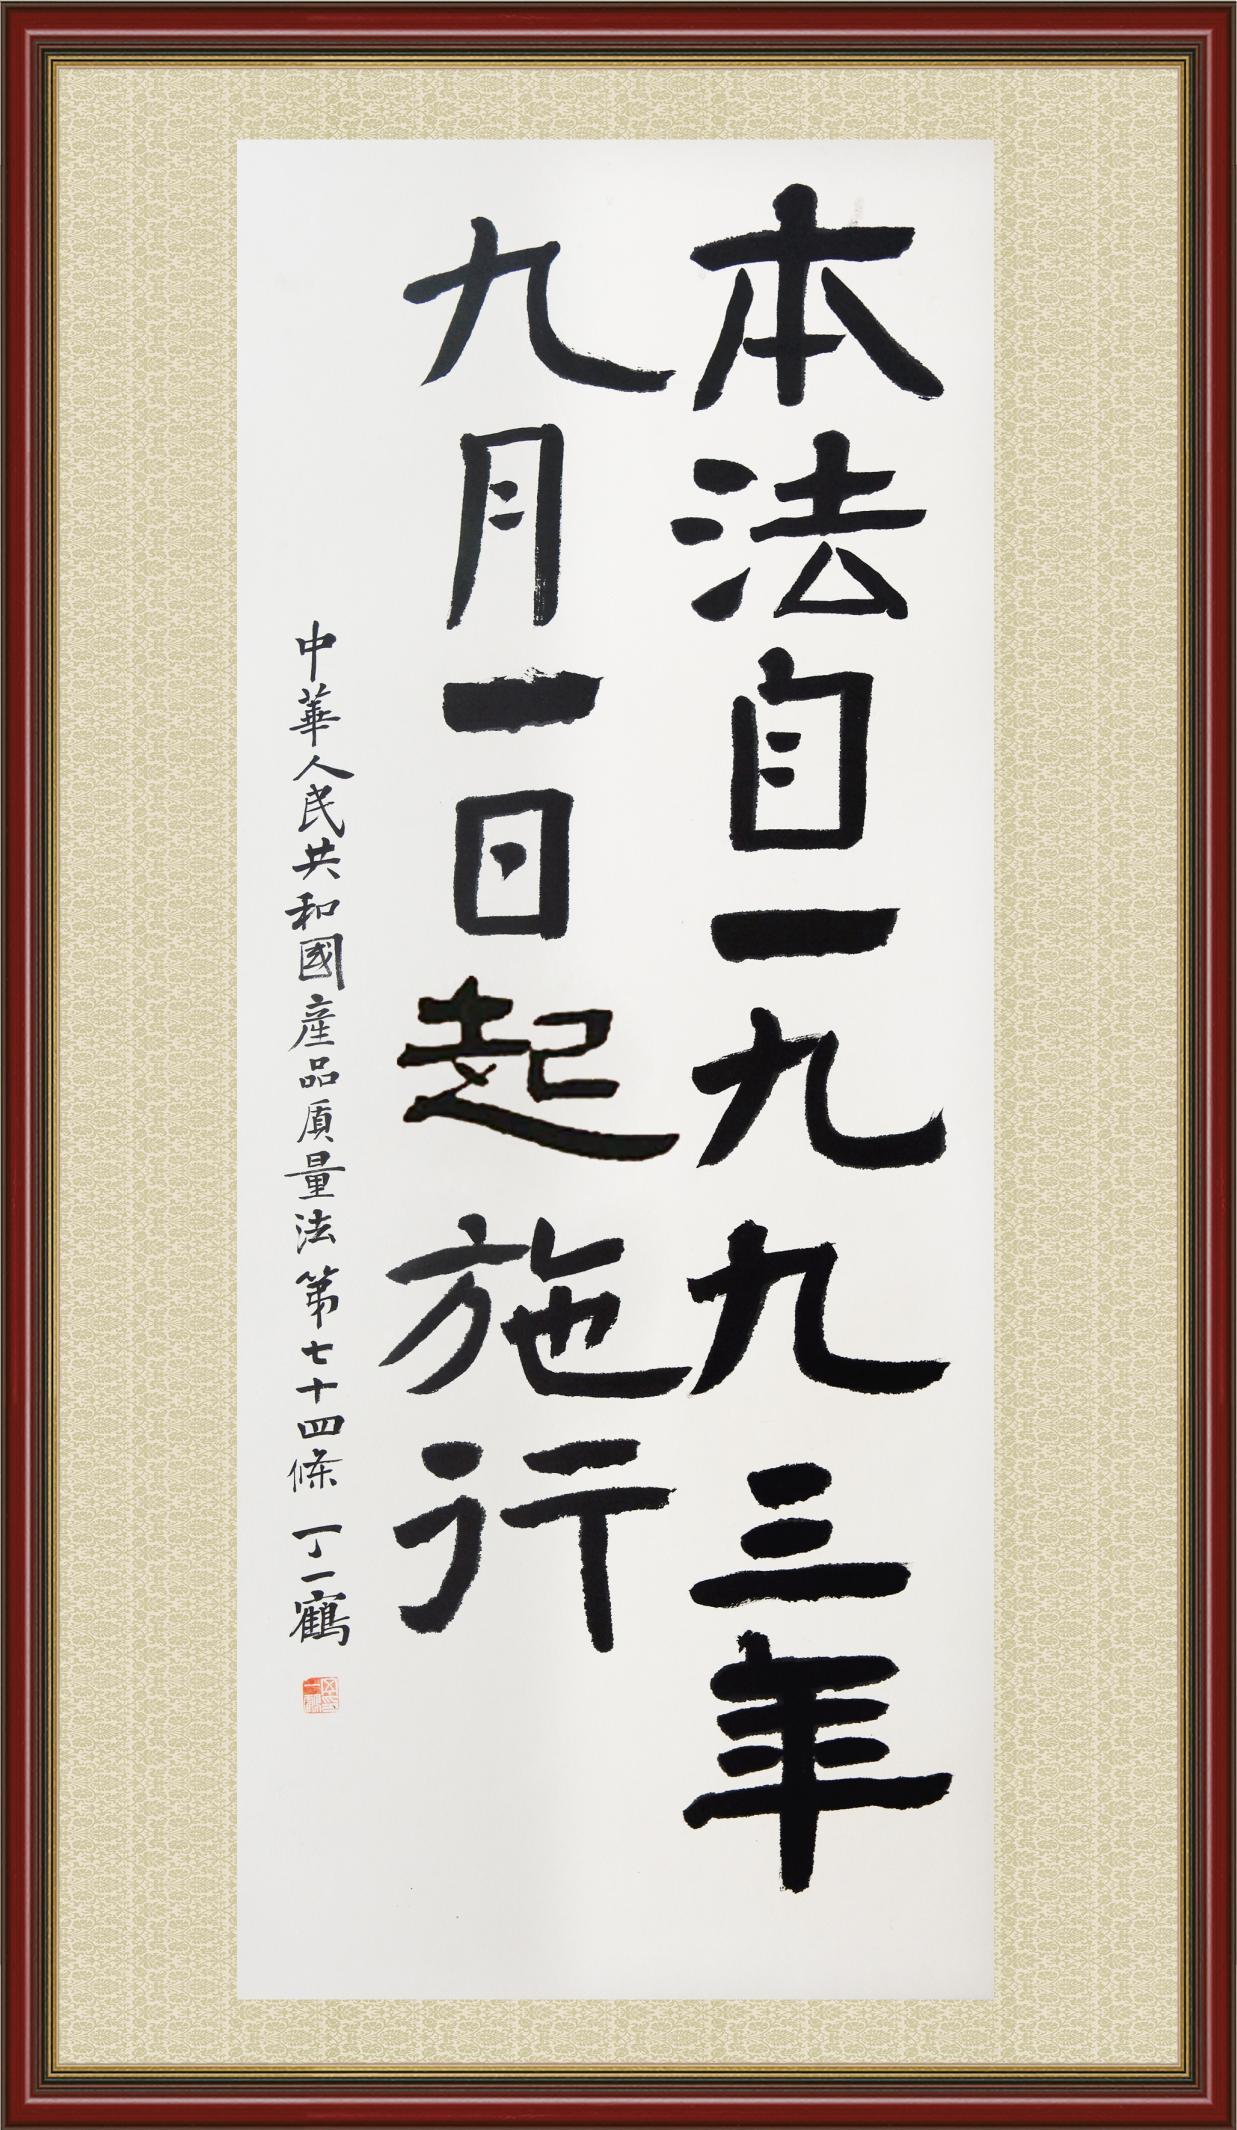 本法自一九九三年
九月一日起施行
中華人民共和國產品质量法第七十四條 丁一鶴